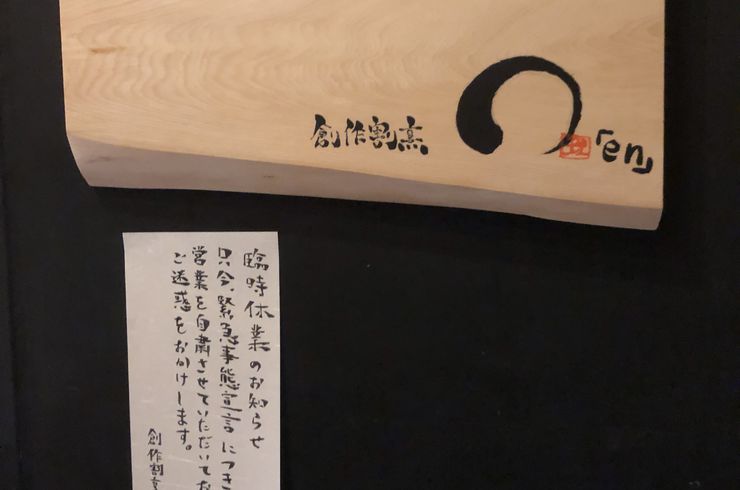 創作割烹
「en」
臨時休業のお知らせ
只今、緊急事態宣言につき
営業を自粛させていただいてお
ご迷惑をおかけします。
創作割烹